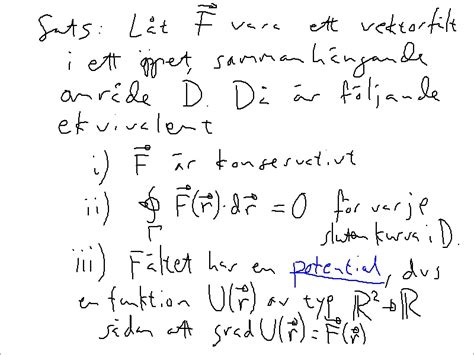 Sats: Låt F⃗ vara ett vektorfält
i ett öppet, sammanhängande
område D. Då är följande
ekvivalent
i) F⃗ är konservativt
ii) ∮_Γ F⃗(r⃗)·dr⃗ = 0 för varje
sluten kurva i D.
iii) Fältet har en potential, dvs
en funktion U(r⃗) av typ ℝ²→ℝ
sådan att grad U(r⃗) = F⃗(r⃗)